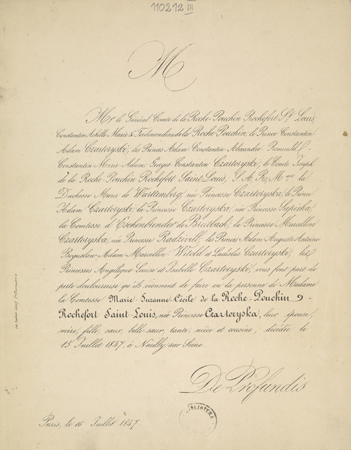 110212 III
M
Mr le Général Comte de la Roche-Pouchin Rochefort St Louis,
Constantin Achille Marie & Ferdinand de la Roche Pouchin, le Prince Constantin
Adam Czartoryski, les Princes Adam Constantin Alexandre
Constantin Marie Adam, Georges Constantin Czartoryski, le Comte Joseph
de la Roche Pouchin Rochefort Saint Louis, S. A. R. Mme la
Duchesse Marie de Württemberg née Princesse Czartoryska, le Prince
Adam Czartoryski, la Princesse Czartoryska, née Princesse Sapieha,
la Comtesse d'Eschenbrender de Breidbach, la Princesse Marcelline
Czartoryska, née Princesse Radziwill, les Princes Adam Auguste Antoine
Boguslaw Adam Marcellin Witold et Ladislas Czartoryski, les
Princesses Angélique Louise et Isabelle Czartoryska; vous font part de
perte douloureuse qu'ils viennent de faire en la personne de Madame
la Comtesse Marie Suzanne Cécile de la Roche-Pouchin
Rochefort Saint Louis, née Princesse Czartoryska, leur épouse,
mère, fille, sœur, belle-sœur, tante, nièce et cousine, décédée le
15 Juillet 1847, à Neuilly sur Seine.
De Profundis
Paris, le 16 Juillet 1847